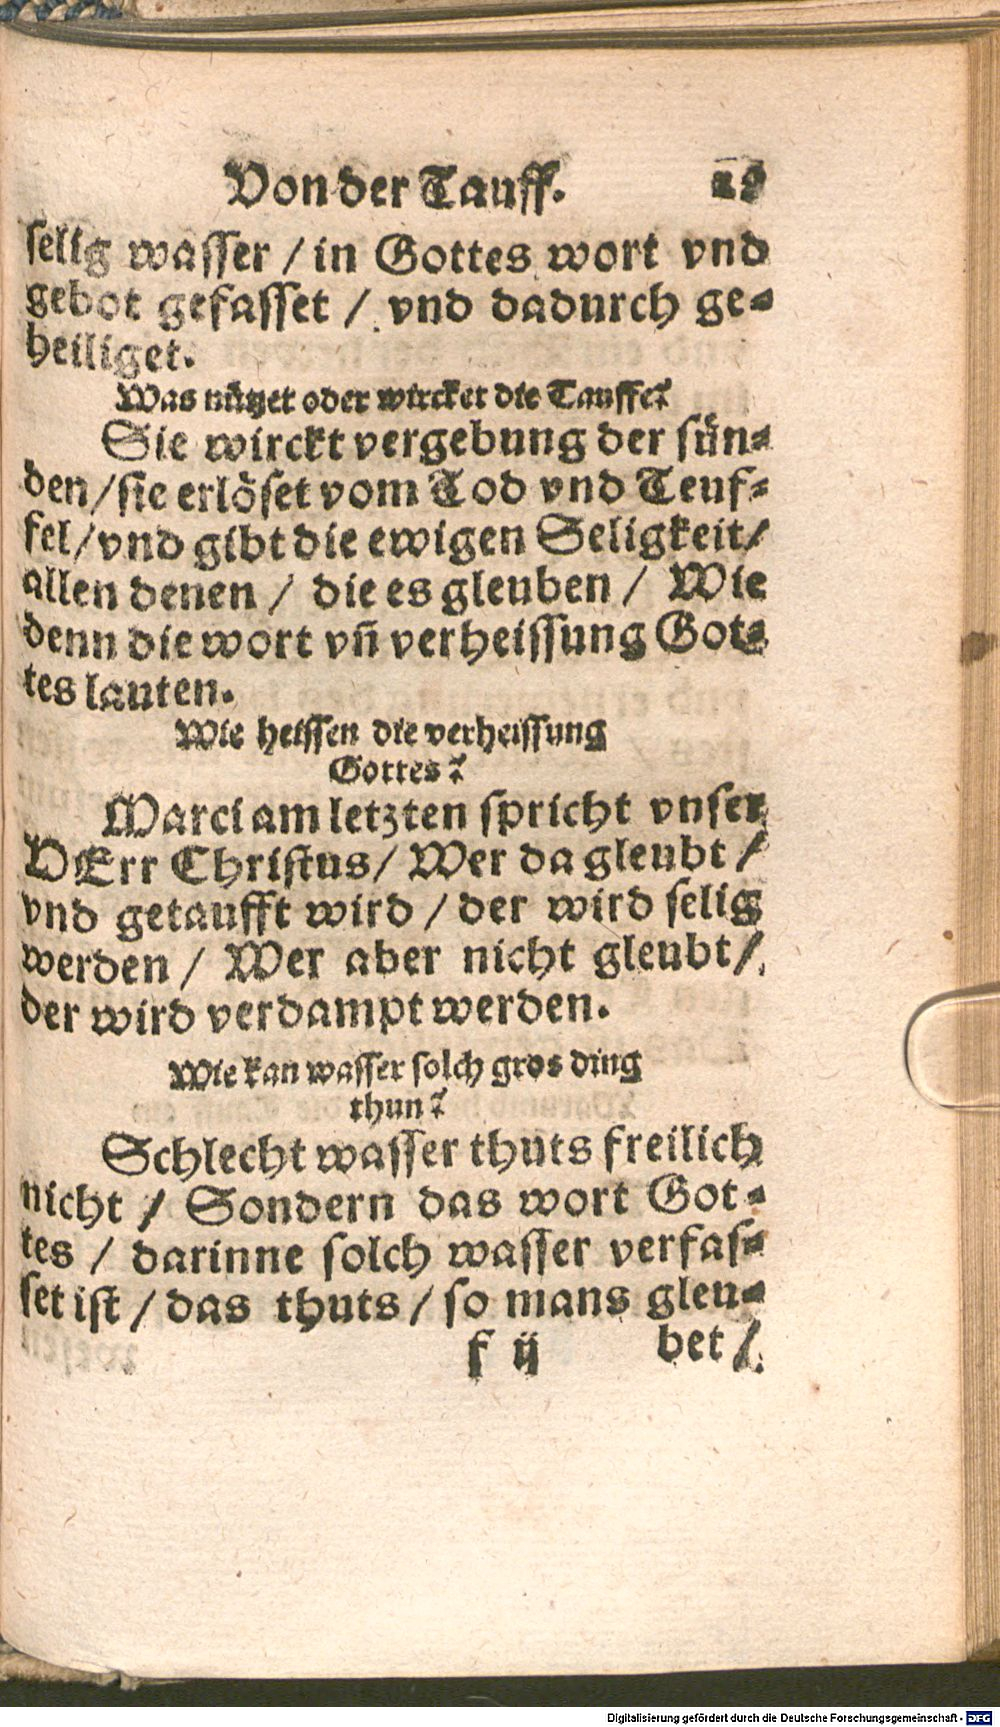 Von der Tauff. 29
selig wasser / in Gottes wort vnd
gebot gefasset / vnd dadurch ge-
heiliget.
Was nützet oder wircket die Tauffe?
Sie wirckt vergebung der sün-
den / sie erlöset vom Tod vnd Teuf-
fel / vnd gibt die ewigen Seligkeit /
allen denen / die es gleuben / Wie
denn die wort vn̄ verheissung Got-
tes lauten.
Wie heissen die verheissung
Gottes?
Marci am letzten spricht vnser
HErr Christus / Wer da gleubt /
vnd getaufft wird / der wird selig
werden / Wer aber nicht gleubt /
der wird verdampt werden.
Wie kan wasser solch gros ding
thun?
Schlecht wasser thuts freilich
nicht / Sondern das wort Got-
tes / darinne solch wasser verfas-
set ist / das thuts / so mans gleu-
f ij bet /
Digitalisierung gefördert durch die Deutsche Forschungsgemeinschaft - DFG